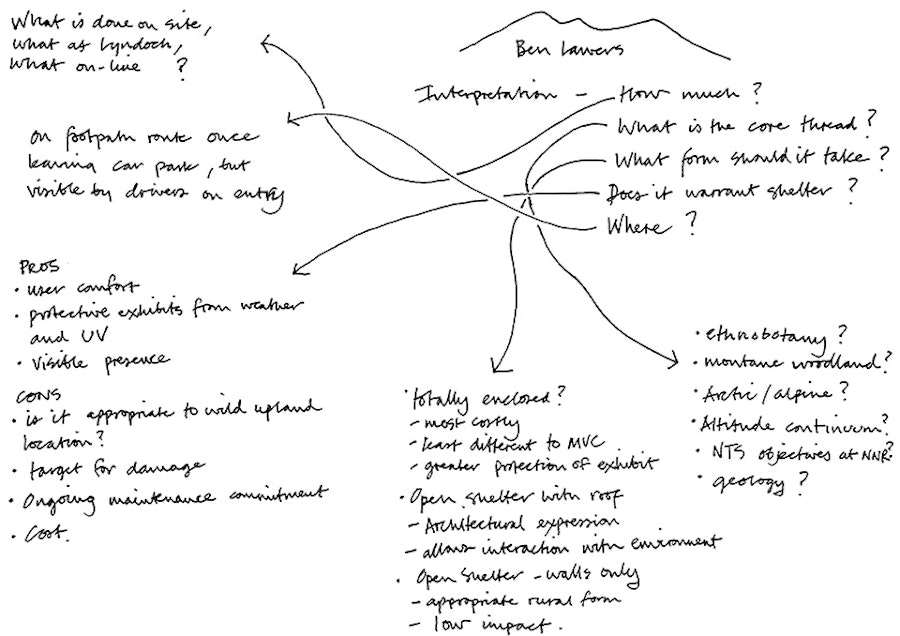 What is done on site,
what at Lyndoch,
what on-line ?
Ben Lawers
Interpretation – How much ?
What is the core thread ?
What form should it take ?
Does it warrant shelter ?
Where ?
on footpath route once
leaving car park, but
visible by drivers on entry
PROS
· user comfort
· protective exhibits from weather
and UV
· visible presence
CONS
· is it appropriate to wild upland
location?
· target for damage
· Ongoing maintenance commitment
· Cost.
· totally enclosed?
– most costly
– least different to MVC
– greater protection of exhibit
· Open shelter with roof
– Architectural expression
– allows interaction with environment
· Open shelter – walls only
– appropriate rural form
– low impact.
· ethnobotany ?
· montane woodland?
· Arctic/alpine?
· Altitude continuum?
· NTS objectives at NNR?
· geology ?